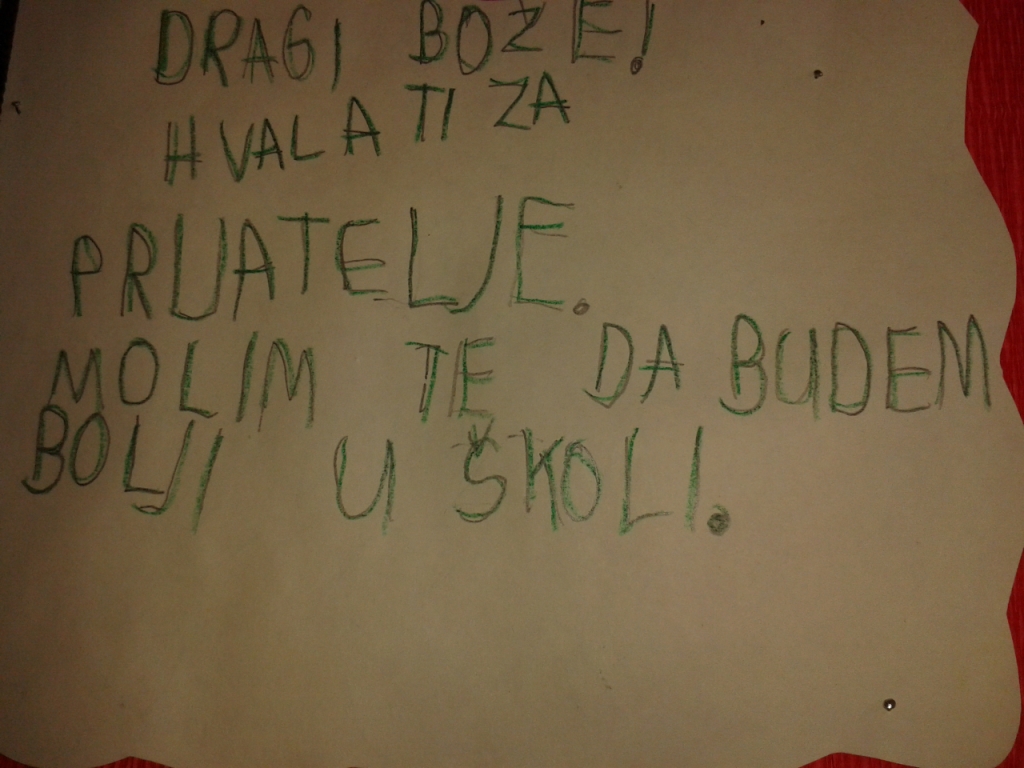 DRAGI BOŽE!
HVALA TI ZA
PRIJATELJE.
MOLIM TE DA BUDEM
BOLJI U ŠKOLI.